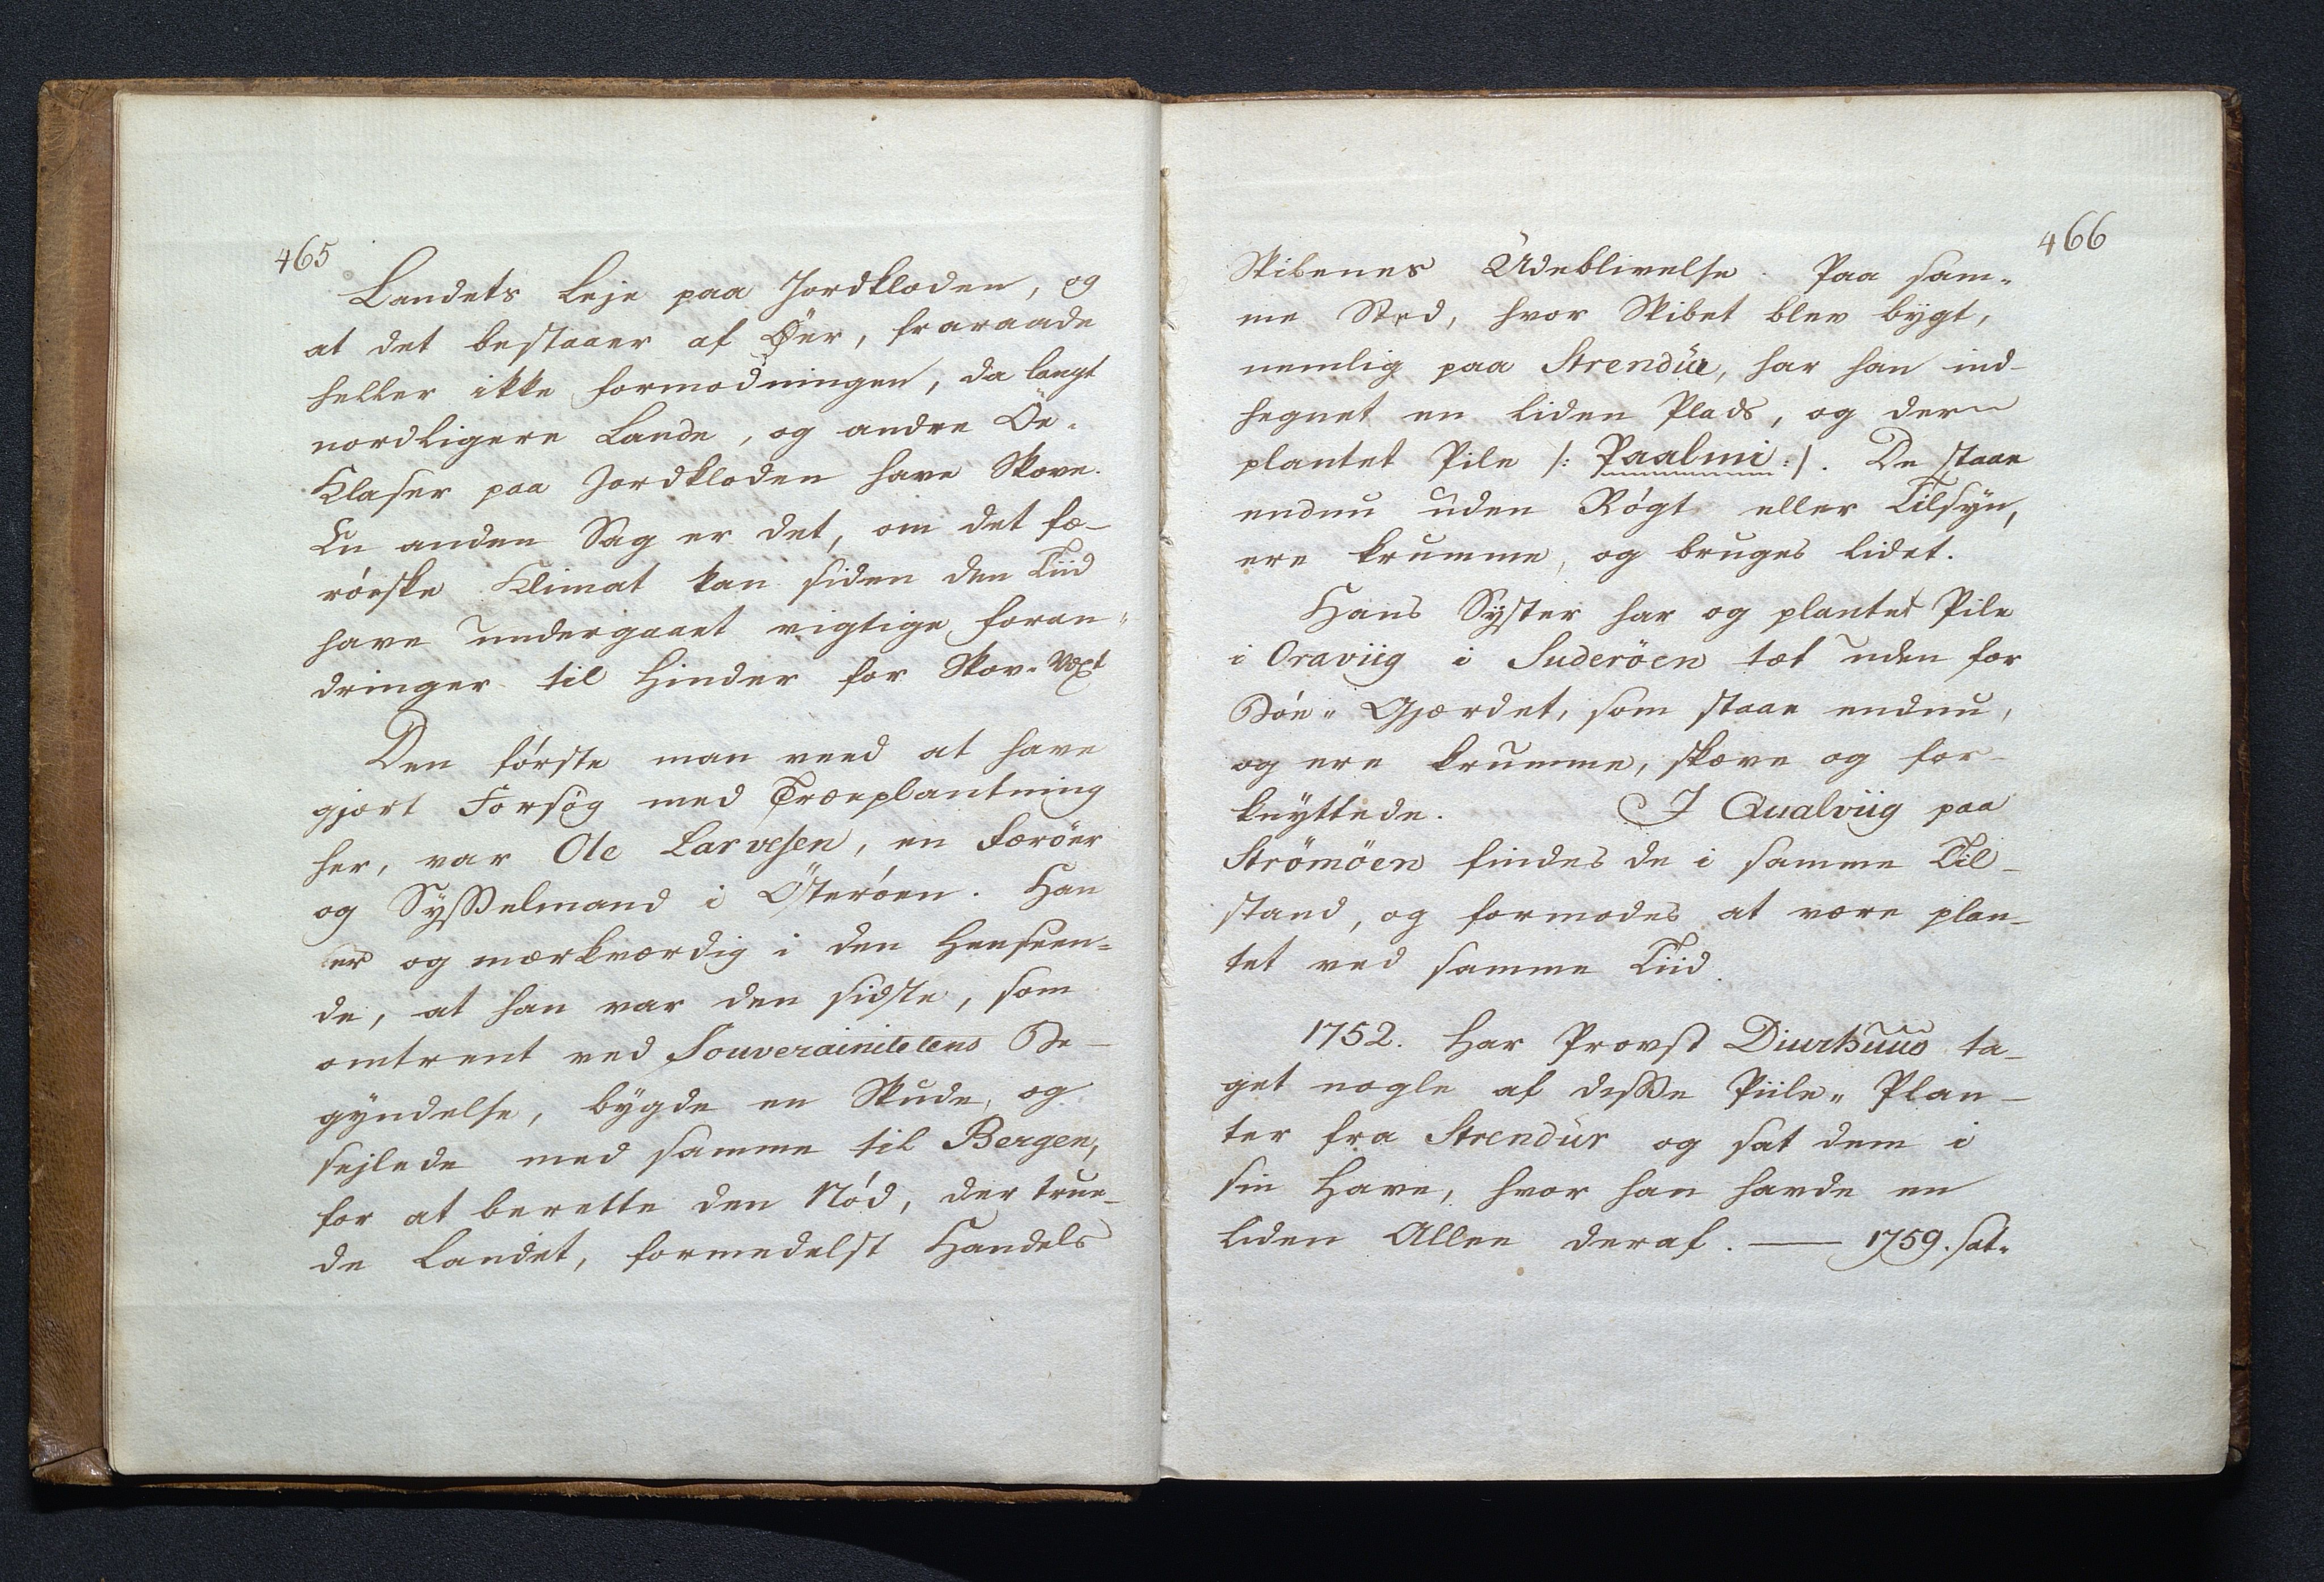 465
Landets Leje paa Jordkloden, og
at det bestaaer af Öer, fraraade
heller ikke formodningen, da langt
nordligere Lande, og andre Öe-
Klaser paa Jordkloden have Skove.
En anden Sag er det, om det fæ-
röeske Klimat kan siden den Tiid
have undergaaet vigtige foran-
dringer til Hinder for Skov-Væxt
Den förste man veed at have
gjort Forsög med Træeplantning
her, var Ole Larvesen, en Færöer
og Sysselmand i Österöen. Han
er og mærkværdig i den Henseen-
de, at han var den sidste, som
omtrent ved Souverainitetens Be-
gyndelse, bÿgde en Skude, og
sejlede med samme til Bergen,
for at berette den Nöd, der true-
de Landet, formedelst Handels
466
Skibenes Udeblivelse. Paa sam-
me Sted, hvor Skibet blev bÿgt,
nemlig paa Strendür, har han ind-
hegnet en liden Plads, og der
plantet Pile /: Paalmi :/. De staae
endnu uden Rögt eller Tilsÿn,
ere krumme, og bruges lidet.
Hans Sÿster har og plantet Pile
i Oraviig i Suderöen tæt uden for
Böe-Gjærdet, som staae endnu,
og ere krumme, skæve og for-
knÿttede. I Qualviig paa
Strömöen findes de i samme Til-
stand, og formodes at være plan-
tet ved samme Tiid.
1752. Har Provst Diurhuus ta-
get nogle af disse Piile-Plan-
ter fra Strendür og sat dem i
sin Have, hvor han havde en
liden Allee deraf. — 1759. sat-